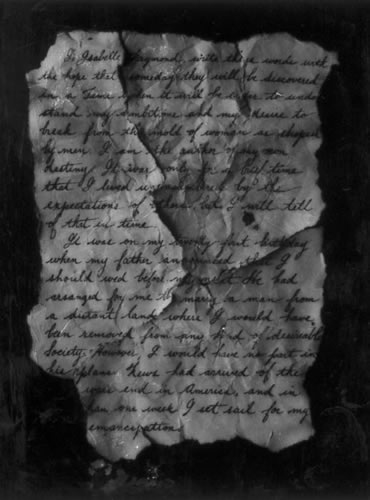 I, Isabelle Raymond, write these words with
the hope that someday they will be discovered
in a time when it will be to under
stand my ambitions and my desire to
break from the mold of woman as shaped
by men. I am the author of my own
destiny. It was only for a brief time
that I lived unencumbered by the
expectations of others, but I will tell
of that in time.
It was on my twenty first birthday
when my father announced that I
should wed before my next. He had
arranged for me to marry a man from
a distant land, where I would have
been removed from any kind of desirable
Society. However, I would have no part in
his plans. News had arrived of the
war's end in America, and in
than one week I set sail for my
emancipation.